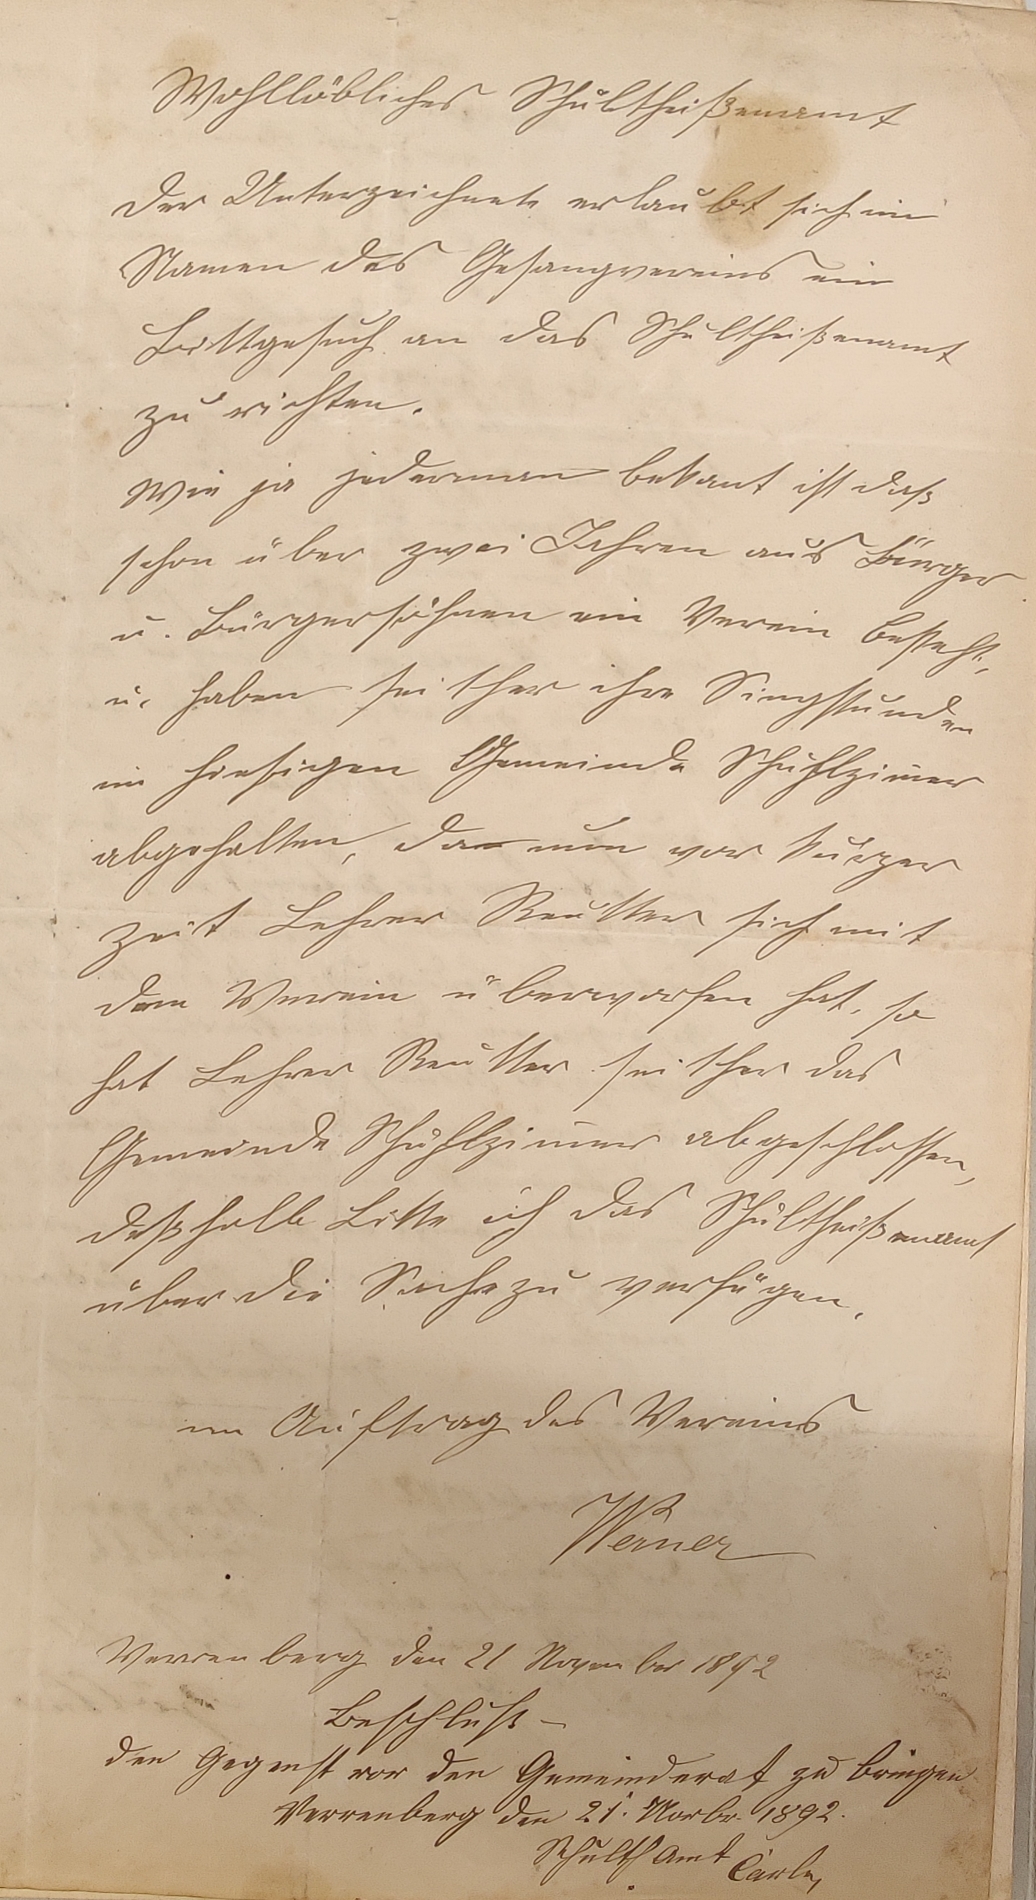 Wohllöbliches Schultheißenamt
Der Unterzeichnete erlaubt sich im
Namen des Gesangvereins ein
Bittgesuch an das Schultheißenamt
zu richten.
Wie ja jederman bekant ist daß
schon über zwei Jahren aus Bürger
u. Bürgersöhnen ein Verein besteht,
u. haben seither ihre Singstunden
im hiesigen Gemeinde Schuhlzimer
abgehalten, da nun vor kurzer
zeit Lehrer Reutter sich mit
dem Verein überworfen hat, so
hat Lehrer Reutter seither das
Gemeinde Schuhlzimer abgeschlossen,
deßhalb Bitte ich das Schultheißenamt
über die Sache zu verfügen.
im Auftrag des Vereins
Werner
Verrenberg den 21 November 1892
Beschluß -
den Gegenst vor den Gemeinderat zu bringen
Verrenberg den 21. Novbr. 1892.
Schulth Amt Carle